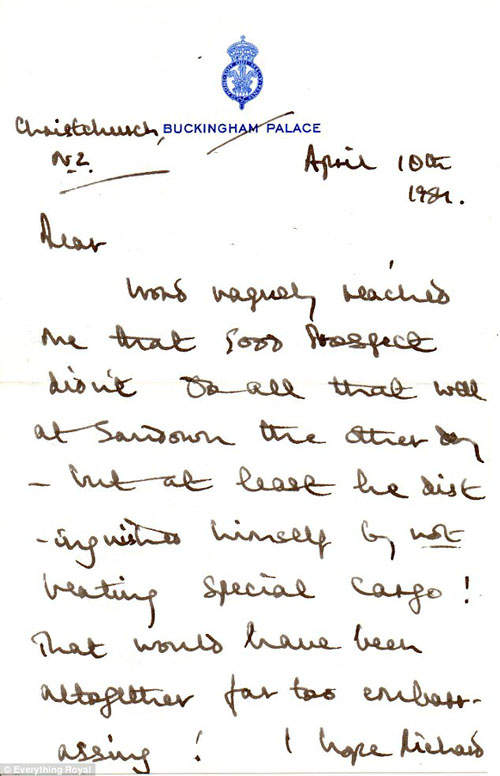 Christchurch, BUCKINGHAM PALACE
N.Z.
April 10th
1981.
Dear
Word vaguely reached
me that Good Prospect
didn't do all that well
at Sandown the other day
- but at least he dist
-inguished himself by not
beating Special Cargo!
That would have been
altogether far too embarr-
assing! I hope Richard
© Everything Royal